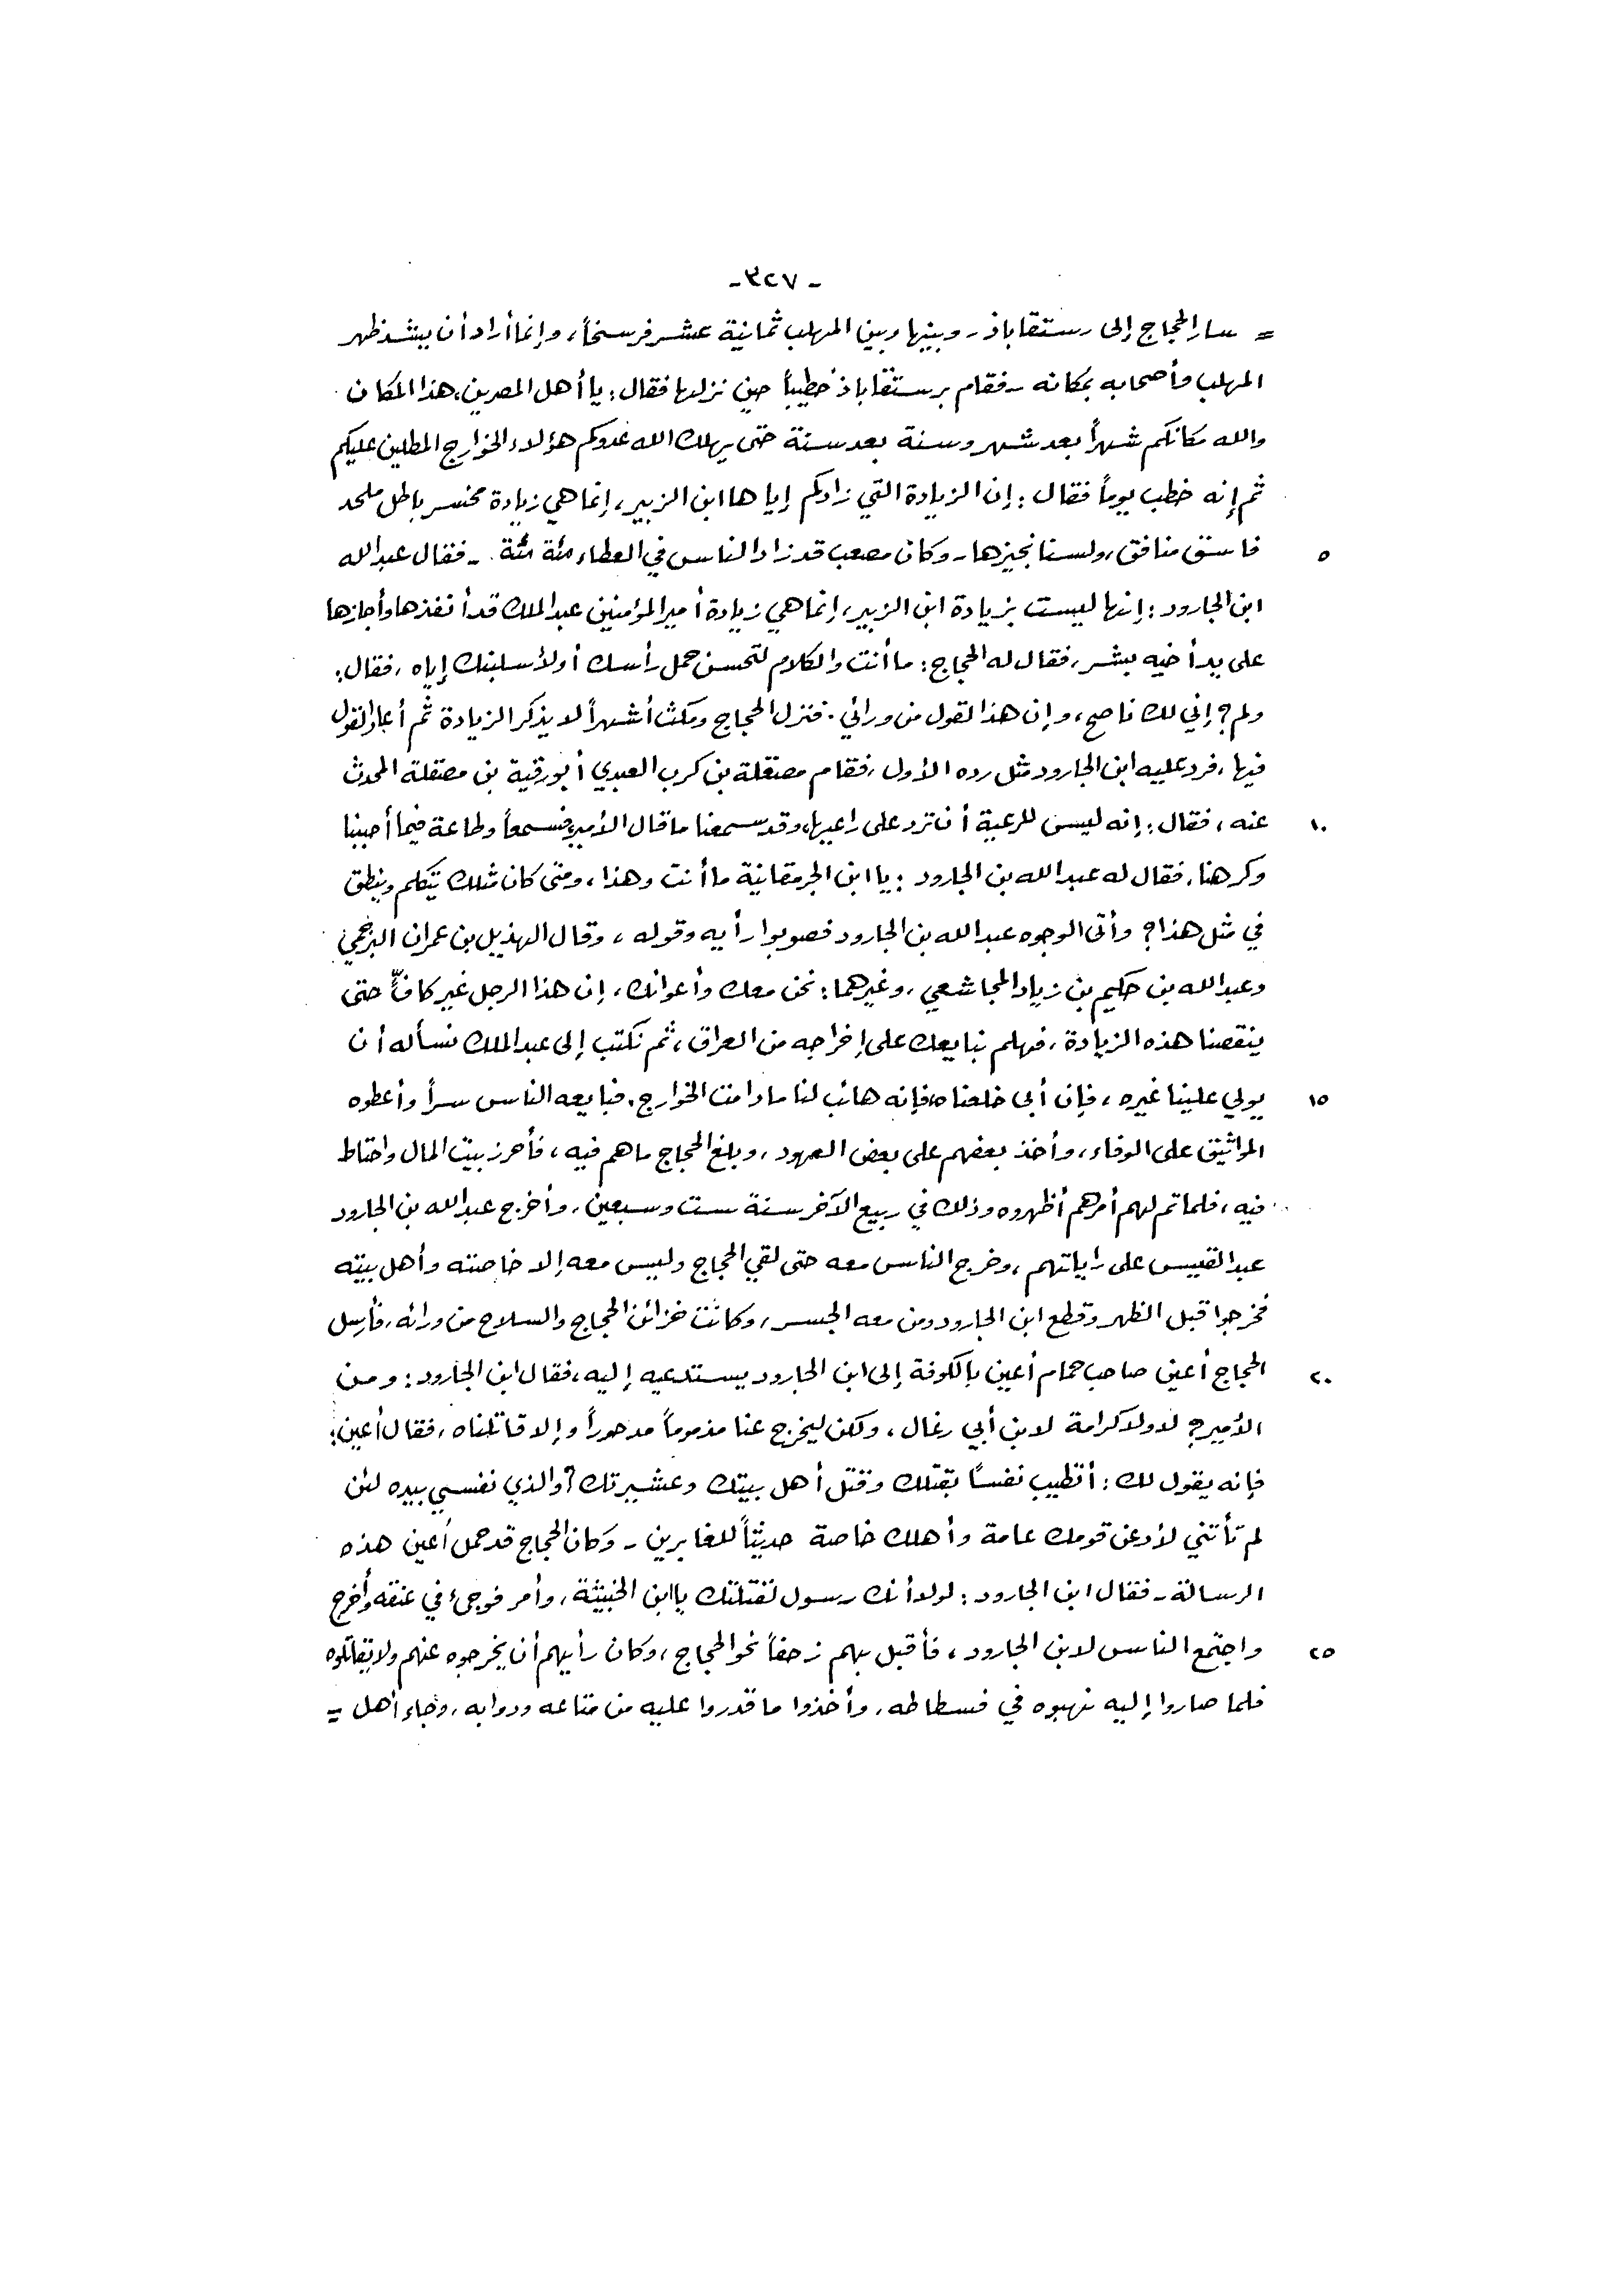 - ٣٢٧ -
= سار الحجاج إلى رستقاباذ - وبينها وبين المهلب ثمانية عشر فرسخاً، وإنما أراد أن يشد ظهر
المهلب وأصحابه بمكانه - فقام برستقاباذ خطيباً حين نزلها فقال: يا أهل المصرين، هذا المكان
والله مكانكم شهراً بعد شهر وسنة بعد سنة حتى يهلك الله عدوكم هؤلاء الخوارج المطلين عليكم
ثم إنه خطب يوماً فقال: إن الزيادة التي زادكم إياها ابن الزبير، إنما هي زيادة مخسر باطل ملحد
٥ فاسق منافق، ولسنا نجيزها - وكان مصعب قد زاد الناس في العطاء مئة مئة - فقال عبد الله
ابن الجارود: إنها ليست بزيادة ابن الزبير، إنما هي زيادة أمير المؤمنين عبد الملك قد أنفذها وأجازها
على يد أخيه بشر، فقال له الحجاج: ما أنت والكلام لتحسن حمل رأسك أو لأسلبنك إياه، فقال:
ولم؟ إني لك ناصح، وإن هذا لقول من ورائي. فنزل الحجاج ومكث أشهراً لا يذكر الزيادة ثم أعاد القول
فيها، فرد عليه ابن الجارود مثل رده الأول، فقام مصقلة بن كرب العبدي أبو رقبة بن مصقلة المحدث
١٠ عنه، فقال: إنه ليس للرعية أن ترد على راعيها، وقد سمعنا ما قال الأمير، فسمعاً وطاعة فيما أحببنا
وكرهنا. فقال له عبد الله بن الجارود: يا ابن الجرمقانية ما أنت وهذا، ومتى كان مثلك يتكلم وينطق
في مثل هذا؟ وأتى الوجوه عبد الله بن الجارود فصوبوا رأيه وقوله، وقال الهذيل بن عمران البرجمي
وعبد الله بن حكيم بن زياد المجاشعي، وغيرهما: نحن معك وأعوانك، إن هذا الرجل غير كافٍّ حتى
ينقصنا هذه الزيادة، فهلم نبايعك على إخراجه من العراق، ثم نكتب إلى عبد الملك نسأله أن
١٥ يولي علينا غيره، فإن أبى خلعناه، فإنه هائب لنا ما دامت الخوارج. فبايعه الناس سراً وأعطوه
المواثيق على الوفاء، وأخذ بعضهم على بعض العهود، وبلغ الحجاج ما هم فيه، فأحرز بيت المال واحتاط
فيه، فلما تم لهم أمرهم أظهروه وذلك في ربيع الآخر سنة ست وسبعين، وأخرج عبد الله بن الجارود
عبد القيس على راياتهم، وخرج الناس معه حتى لقي الحجاج وليس معه إلا خاصته وأهل بيته
فخرجوا قبل الظهر وقطع ابن الجارود ومن معه الجسر، وكانت خزائن الحجاج والسلاح من ورائه، فأرسل
٢٠ الحجاج أعين صاحب حمام أعين بالكوفة إلى ابن الجارود يستدعيه إليه، فقال ابن الجارود: ومن
الأمير؟ لا ولا كرامة لابن أبي رغال، ولكن ليخرج عنا مذموماً مدحوراً وإلا قاتلناه، فقال أعين:
فإنه يقول لك: أتطيب نفساً بقتلك وقتل أهل بيتك وعشيرتك؟ والذي نفسي بيده لئن
لم تأتني لأدعن قومك عامة وأهلك خاصة حديثاً للغابرين - وكان الحجاج قد حمل أعين هذه
الرسالة - فقال ابن الجارود: لولا أنك رسول لقتلتك يا ابن الخبيثة، وأمر فوجئ في عنقه وأخرج
٢٥ واجتمع الناس لابن الجارود، فأقبل بهم زحفاً نحو الحجاج، وكان رأيهم أن يخرجوه عنهم ولا يقاتلوه
فلما صاروا إليه نهبوه في فسطاطه، وأخذوا ما قدروا عليه من متاعه ودوابه، وجاء أهل =